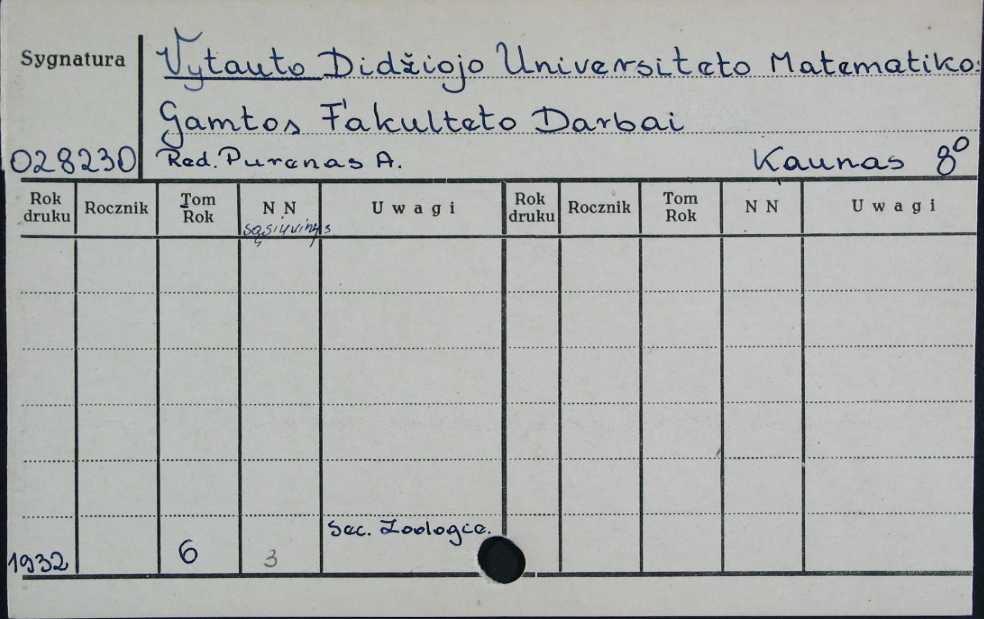 Sygnatura
Vytauto Didžiojo Universiteto Matematikos
Gamtos Fakulteto Darbai
028230 Red. Purenas A. Kaunas 8°
Rok druku Rocznik Tom Rok N N Uwagi Rok druku Rocznik Tom Rok N N Uwagi
sąsiuvinys
Sec. Zoologice.
1932 6 3